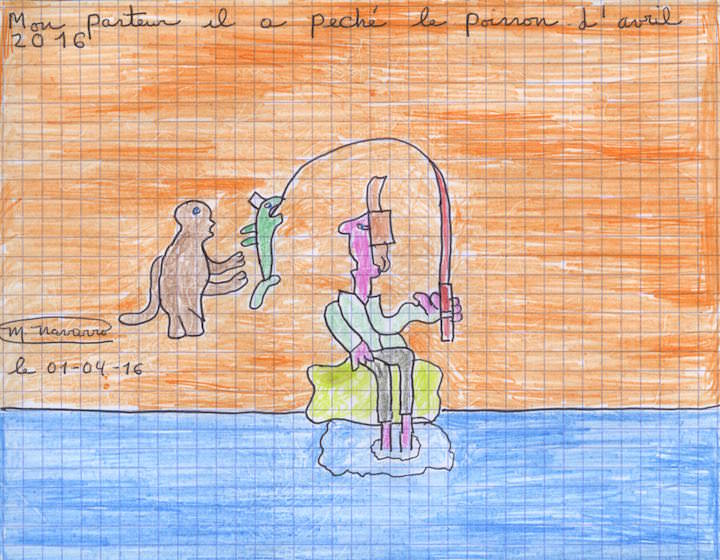 Mon pasteur il a peché le poisson d'avril
2016
M Navarro
le 01-04-16